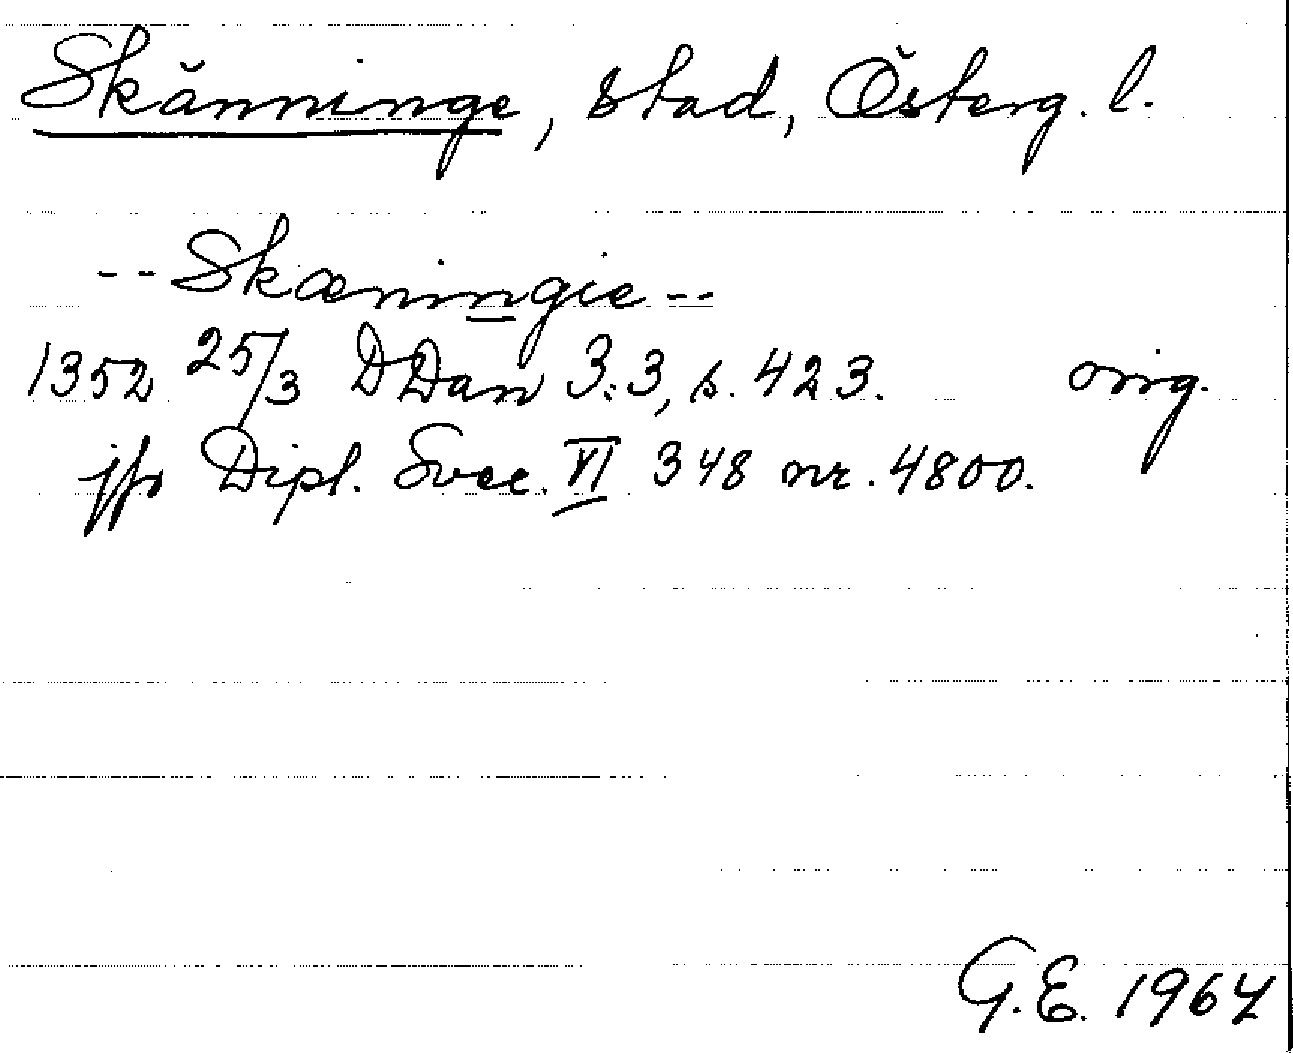 Skänninge, stad, Österg. l.
-- Skæningie --
1352 25/3 DDan 3:3, s. 423. orig.
jfr Dipl. Svec. VI 348 nr. 4800.
G.E. 1967